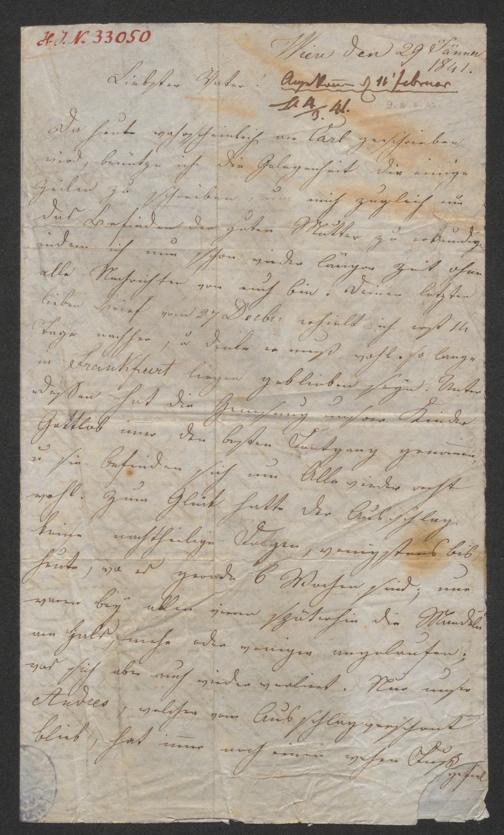 H.I.N. 33050
Wien den 29 Jänner
1841.
Liebster Vater! Angekom̄ d 11t Februar
Da heute wahrscheinlich an Carl geschrieben
wird, benütze ich die Gelegenheit dir einige
Zeilen zu schreiben, um mich zugleich um
das Befinden der guten Mutter zu erkundigen
indem ich nun schon wieder längere Zeit ohne
alle Nachrichten von euch bin. Deinen letzten
lieben Brief vom 27 Decbr. erhielt ich erst 14
Tage nachher, u denke er muß wohl so lange
in Frankfurt liegen geblieben seyn. Unter-
dessen hat die Genesung unserer Kinder
Gottlob immer den besten Fortgang genommen,
u sie befinden sich nun Alle wieder recht
wohl. Zum Glück hatte der Ausschlag
keine nachtheilige Folgen, wenigstens bis
heute, wo es gerade 6 Wochen sind; nur
waren bey allen vieren späterhin die Mandeln
am Hals, mehr oder weniger angelaufen;
was sich aber auch wieder verliert. Nur unser
Andres, welcher vom Ausschlag verschont
blieb, hat immer noch einen wehen Fuß